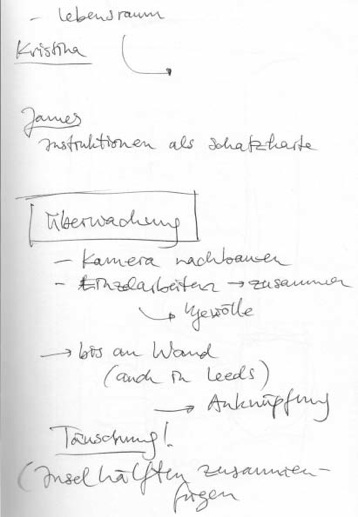 - Lebensraum
Kristina
James
Instruktionen als Schatzkarte
Überwachung
- Kamera nachbauen
- Einzelarbeiten → zusammen
→ bis an Wand
(auch in Leeds)
→ Anknüpfung
Täuschung!
(Inselhälften zusammen-
fügen